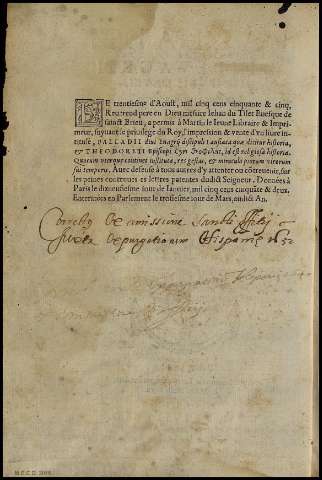 LE trentiesme d'Aoust, mil cinq cens cinquante & cinq,
Reuerend pere en Dieu messire Iehan du Tilet Euesque de
sainct Brieu, a permis à Martin le Ieune Libraire & Impri-
meur, suyuant le priuilege du Roy, l'impression & vente d'vn liure in-
titulé, PALLADII diui Euagrij discipuli Lausiaca quæ dicitur historia,
et THEODORETI Episcopi Cyri Θεοφιλὴς, id est religiosa historia.
Quorum vterque continet instituta, res gestas, et miracula piorum virorum
sui temporis. Auec defense à tous autres d'y attenter ou côtreuenir, sur
les peines contenues es lettres patentes dudict Seigneur. Donnees à
Paris le douziesme iour de Ianuier, mil cinq cens cinquãte & deux.
Enterinees en Parlement le troisiesme iour de Mars, oudict An.
sancti
expurgatorium Hispaniæ 1632
M.E.C.D. 2016